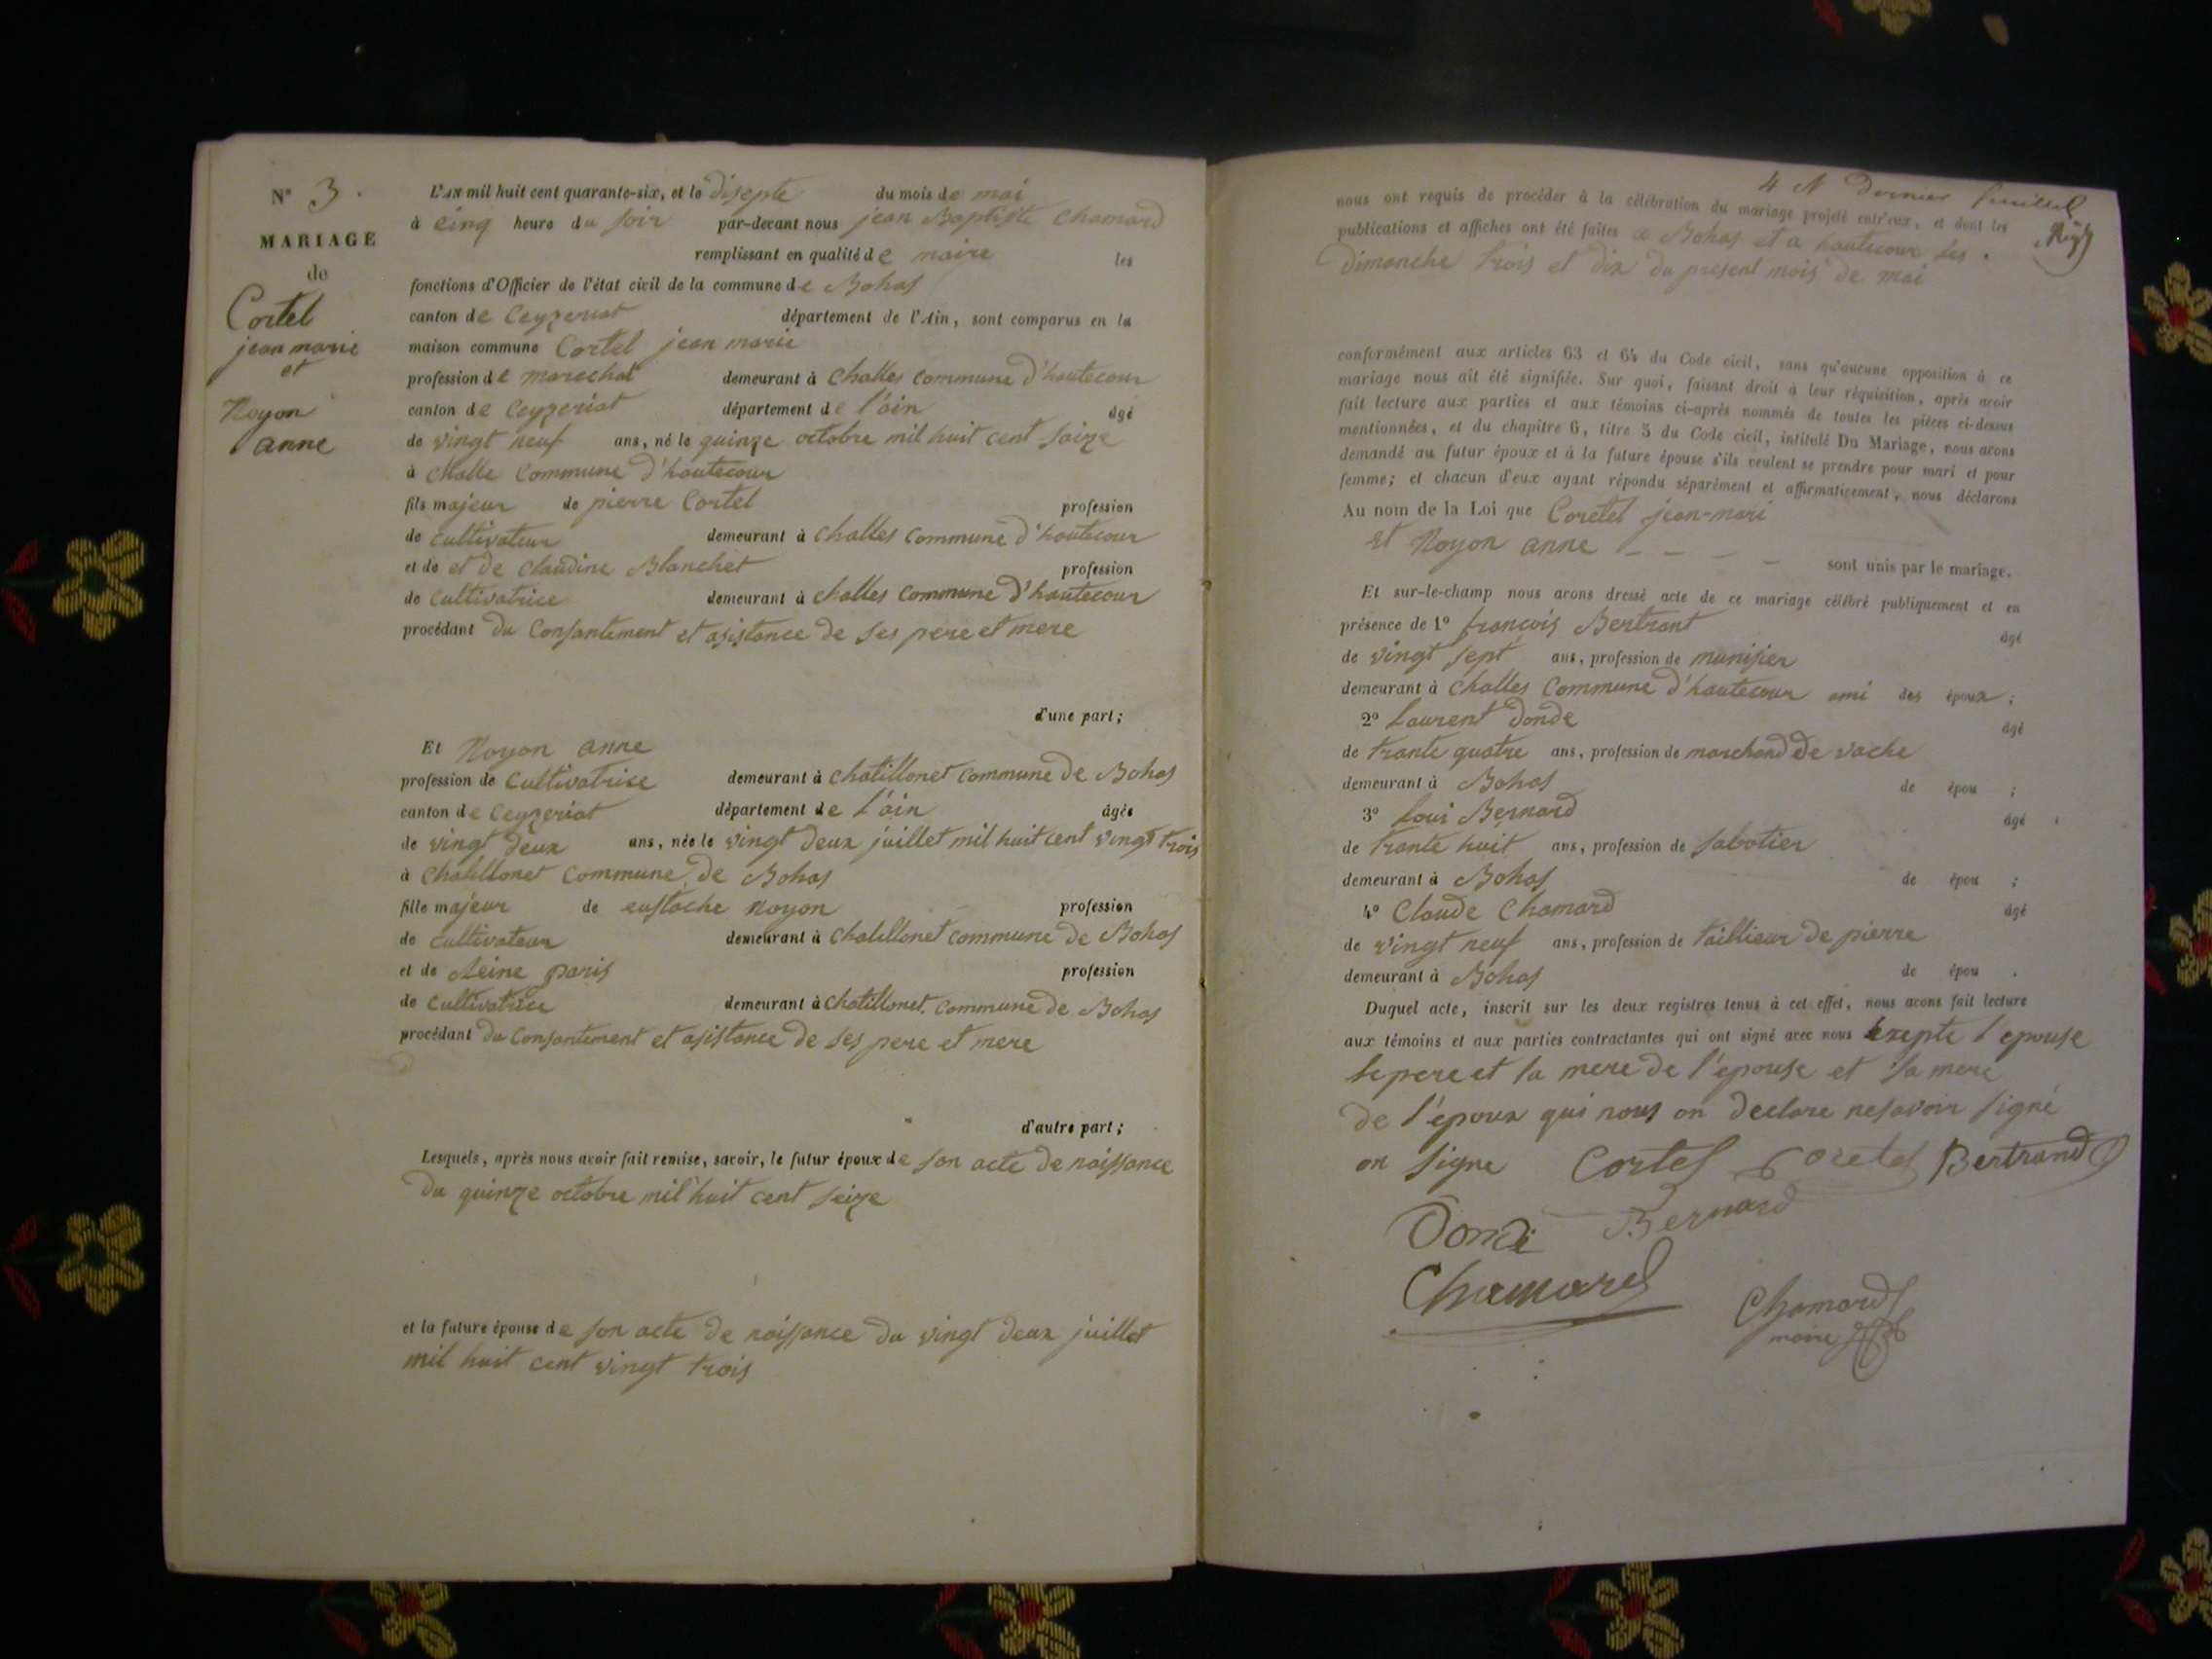 N° 3.
MARIAGE
de
Cortel
jean marie
et
Noyon
anne
L'AN mil huit cent quarante-six, et le disepte du mois de mai
à cinq heure du soir par-devant nous jean Baptiste Chamard
remplissant en qualité de maire les
fonctions d'Officier de l'état civil de la commune de Bohas
canton de Ceyzeriat département de l'Ain, sont comparus en la
maison commune Cortel jean marie
profession de marechal demeurant à Challes Commune d'hautecour
canton de Ceyzeriat département de l'ain âgé
de vingt neuf ans, né le quinze octobre mil huit cent saize
à Challe Commune d'hautecour
fils majeur de pierre Cortel profession
de cultivateur demeurant à challes Commune d'hautecour
et de et de Claudine Blanchet profession
de Cultivatrice demeurant à challes Commune d'hautecour
procédant du Consantement et asistance de ses pere et mere
d'une part;
Et Noyon anne
profession de Cultivatrise demeurant à chatillonet Commune de Bohas
canton de Ceyzeriat département de l'ain âgée
de vingt deux ans, née le vingt deux juillet mil huit cent vingt trois
à Chatillonet Commune de Bohas
fille majeur de eustache noyon profession
de cultivateur demeurant à Chatillonet commune de Bohas
et de Reine paris profession
de Cultivatrice demeurant à Chatillonet Commune de Bohas
procédant du Consantement et asistance de ses pere et mere
d'autre part;
Lesquels, après nous avoir fait remise, savoir, le futur époux de son acte de naissance
du quinze octobre mil huit cent seize
et la future épouse de son acte de naissance du vingt deux juillet
mil huit cent vingt trois
4 N Dernier feuillet
nous ont requis de procéder à la célébration du mariage projeté entr'eux, et dont les
publications et affiches ont été faites a Bohas et a hautecour les
Dimanche trois et dix du present mois de mai
conformément aux articles 63 et 64 du Code civil, sans qu'aucune opposition à ce
mariage nous ait été signifiée. Sur quoi, faisant droit à leur réquisition, après avoir
fait lecture aux parties et aux témoins ci-après nommés de toutes les pièces ci-dessus
mentionnées, et du chapitre 6, titre 5 du Code civil, intitulé Du Mariage, nous avons
demandé au futur époux et à la future épouse s'ils veulent se prendre pour mari et pour
femme; et chacun d'eux ayant répondu séparément et affirmativement, nous déclarons
Au nom de la Loi que Coretel jean-mari
et Noyon anne - - - - sont unis par le mariage.
Et sur-le-champ nous avons dressé acte de ce mariage célébré publiquement et en
présence de 1° françois Bertrant âgé
de vingt sept ans, profession de munisier
demeurant à Challes Commune d'hautecour ami des époux;
2° laurent Donde âgé
de trante quatre ans, profession de marchand de vache
demeurant à Bohas de épou ;
3° Loui Bernard âgé
de trante huit ans, profession de sabotier
demeurant à Bohas de épou ;
4° Claude Chamard âgé
de vingt neuf ans, profession de taillieur de pierre
demeurant à Bohas de épou .
Duquel acte, inscrit sur les deux registres tenus à cet effet, nous avons fait lecture
aux témoins et aux parties contractantes qui ont signé avec nous Exepte l'epouse
le pere et la mere de l'epouse et la mere
de l'époux qui nous on declare nesavoir signé
on signe Cortel Coretel Bertrand
Donde Bernard
Chamard
Chamard
maire